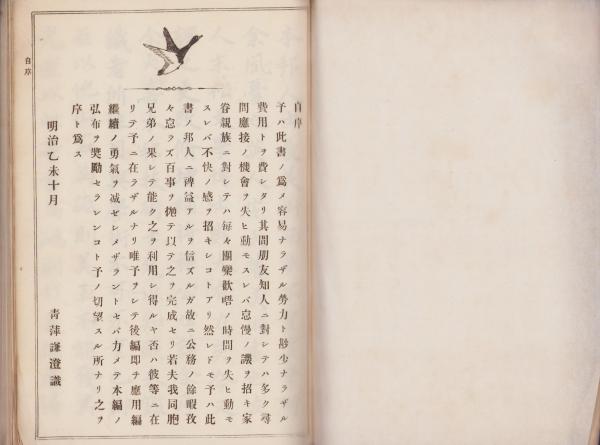 自序
予ハ此書ノ爲メ容易ナラザル勞力ト尠少ナラザル
費用トヲ費シタリ其間朋友知人ニ對シテハ多ク尋
問應接ノ機會ヲ失ヒ動モスレバ怠慢ノ譏ヲ招キ家
眷親族ニ對シテハ每々團欒歡唔ノ時間ヲ失ヒ動モ
スレバ不快ノ感ヲ招キシコトアリ然レドモ予ハ此
書ノ邦人ニ裨益アルヲ信ズルガ故ニ公務ノ餘暇孜
々怠ラズ百事ヲ抛テ以テ之ヲ完成セリ若夫我同胞
兄弟ノ果シテ能ク之ヲ利用シ得ルヤ否ハ彼等ニ在
リテ予ニ在ラザルナリ唯予ヲシテ後編即チ應用編
繼續ノ勇氣ヲ减ゼシメザラントセバ力メテ本編ノ
弘布ヲ奬勵セラレンコト予ノ切望スル所ナリ之ヲ
序ト爲ス
明治乙未十月
靑萍謙澄識
自序